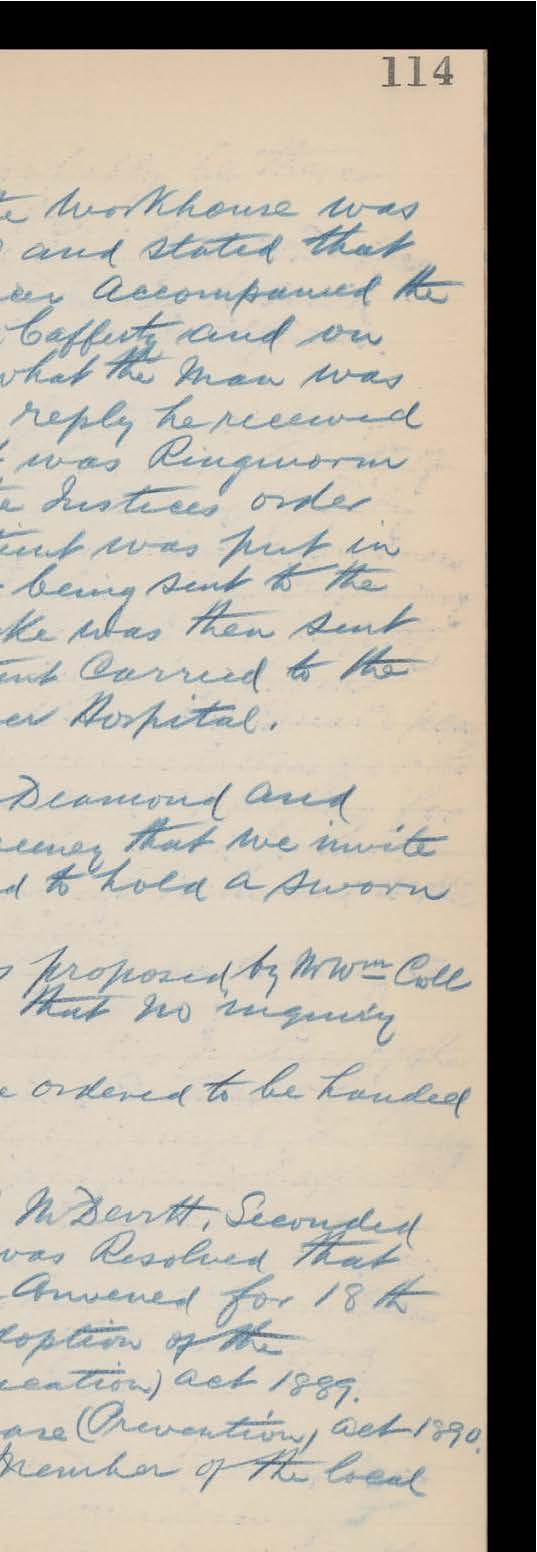 114
te Workhouse was
and stated that
cer Accompanied the
Cafferty and on
what the Man was
reply he received
t was Ringworm
e Justices order
tient was put in
being sent to the
ke was then sent
ent Carried to the
er Hospital.
Deamond and
eeney that we invite
d to hold a sworn
s proposed by Mr Wm Coll
that no inquiry
e ordered to be handed
McDevitt, Seconded
was Resolved that
Convened for 18th
doption of the
ication) Act 1889.
ase (Prevention) Act 1890.
Member of the local